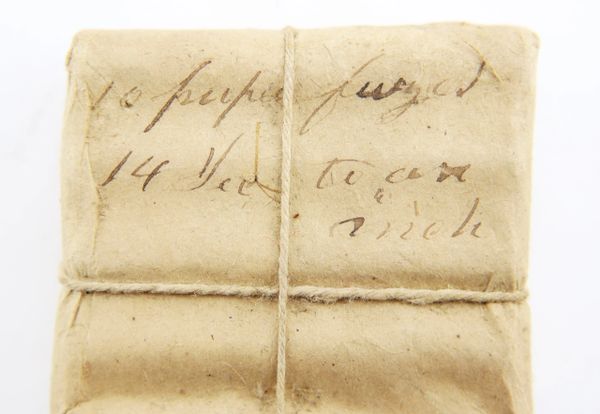 10 paper fuzes
14 Sec to an
inch